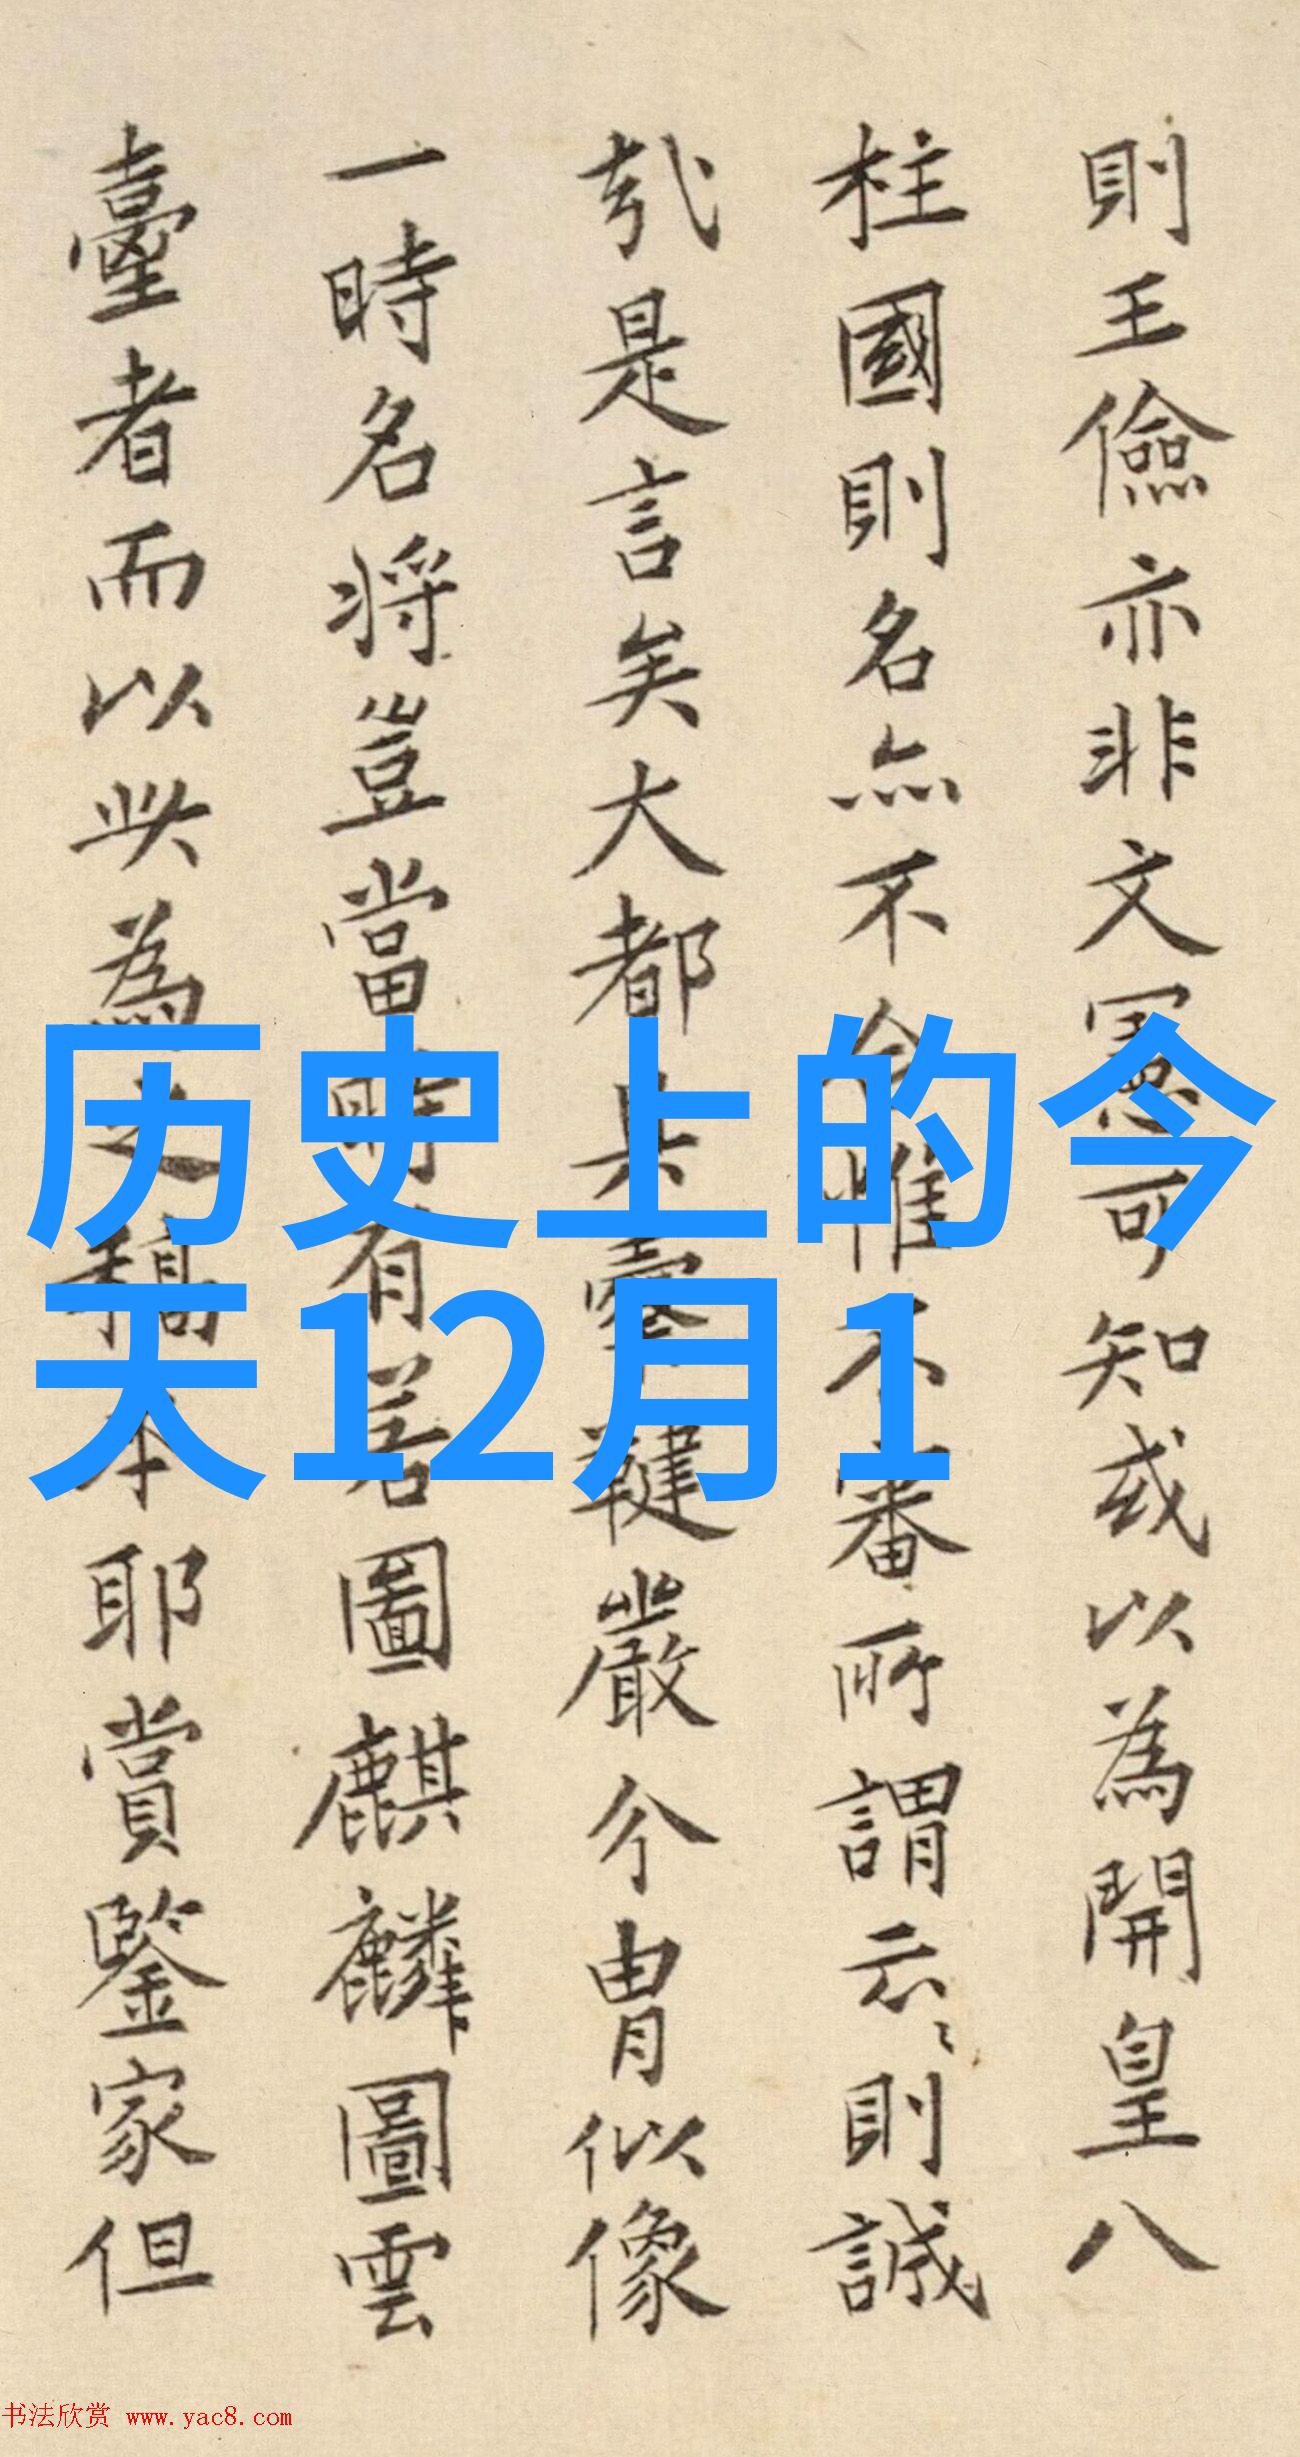 則王儉亦非文憲可知或以為開皇八
柱國則名亦不合惟不審所謂云〻則誠
哉是言矣大都具櫜鞬嚴介胄似像
一時名将豈當時有若圖麒麟圖雲
臺者而以此為之稿本耶賞鑒家但
历史上的今
天12月1
书法欣赏 www.yac8.com